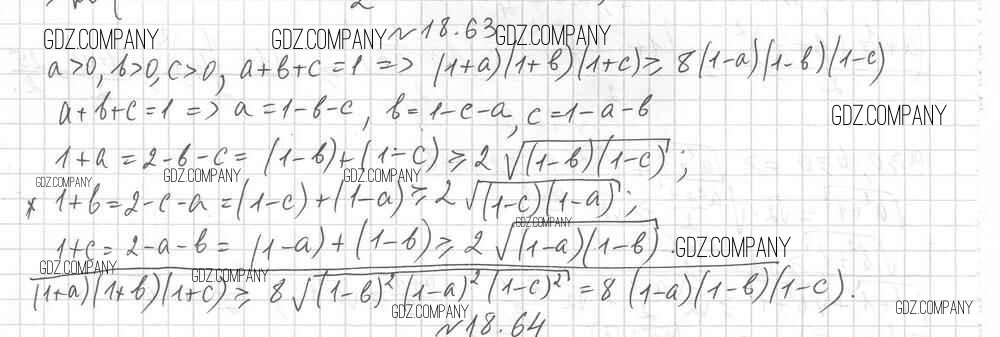 №18.63
GDZ.COMPANY GDZ.COMPANY GDZ.COMPANY
a>0, b>0, c>0, a+b+c=1 => (1+a)(1+b)(1+c) ≥ 8(1-a)(1-b)(1-c)
a+b+c=1 => a=1-b-c, b=1-c-a, c=1-a-b
GDZ.COMPANY
1+a = 2-b-c = (1-b)+(1-c) ≥ 2√((1-b)(1-c));
GDZ.COMPANY GDZ.COMPANY GDZ.COMPANY
× 1+b = 2-c-a = (1-c)+(1-a) ≥ 2√((1-c)(1-a));
GDZ.COMPANY
1+c = 2-a-b = (1-a)+(1-b) ≥ 2√((1-a)(1-b)).
GDZ.COMPANY
GDZ.COMPANY GDZ.COMPANY
(1+a)(1+b)(1+c) ≥ 8√((1-b)²(1-a)²(1-c)²) = 8(1-a)(1-b)(1-c).
GDZ.COMPANY GDZ.COMPANY
№18.64